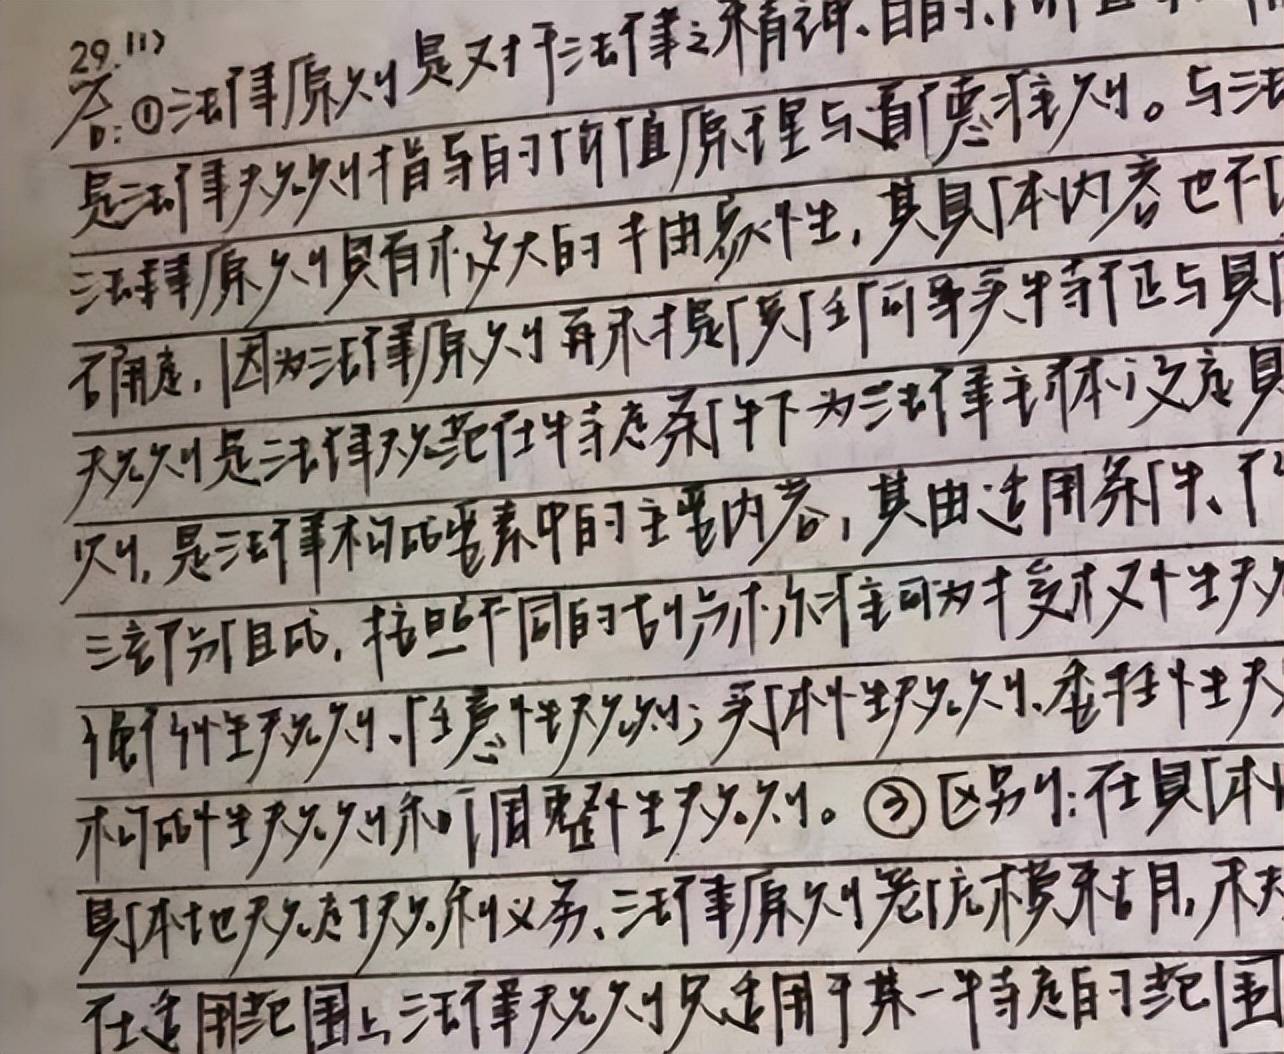 29.(1)
答:①法律原则是对于法律之精神、目的、价值
是法律规则指导的价值原理与道德准则。与法
法律原则具有极大的抽象性,其具体内容也不
确定,因为法律原则再未提供任何事实特征与具
规则是法律规范在特定条件下为法律主体设定具
则,是法律构成要素中的主要内容,其由适用条件、
三部分组成,按照不同的划分标准可为授权性规
强行性规则、任意性规则;实体性规则、委任性
构成性规则和调整性规则。③区别:在具体
具体地规定了权利义务、法律原则笼统模糊,未
在适用范围上法律规则只适用于某一特定的范围